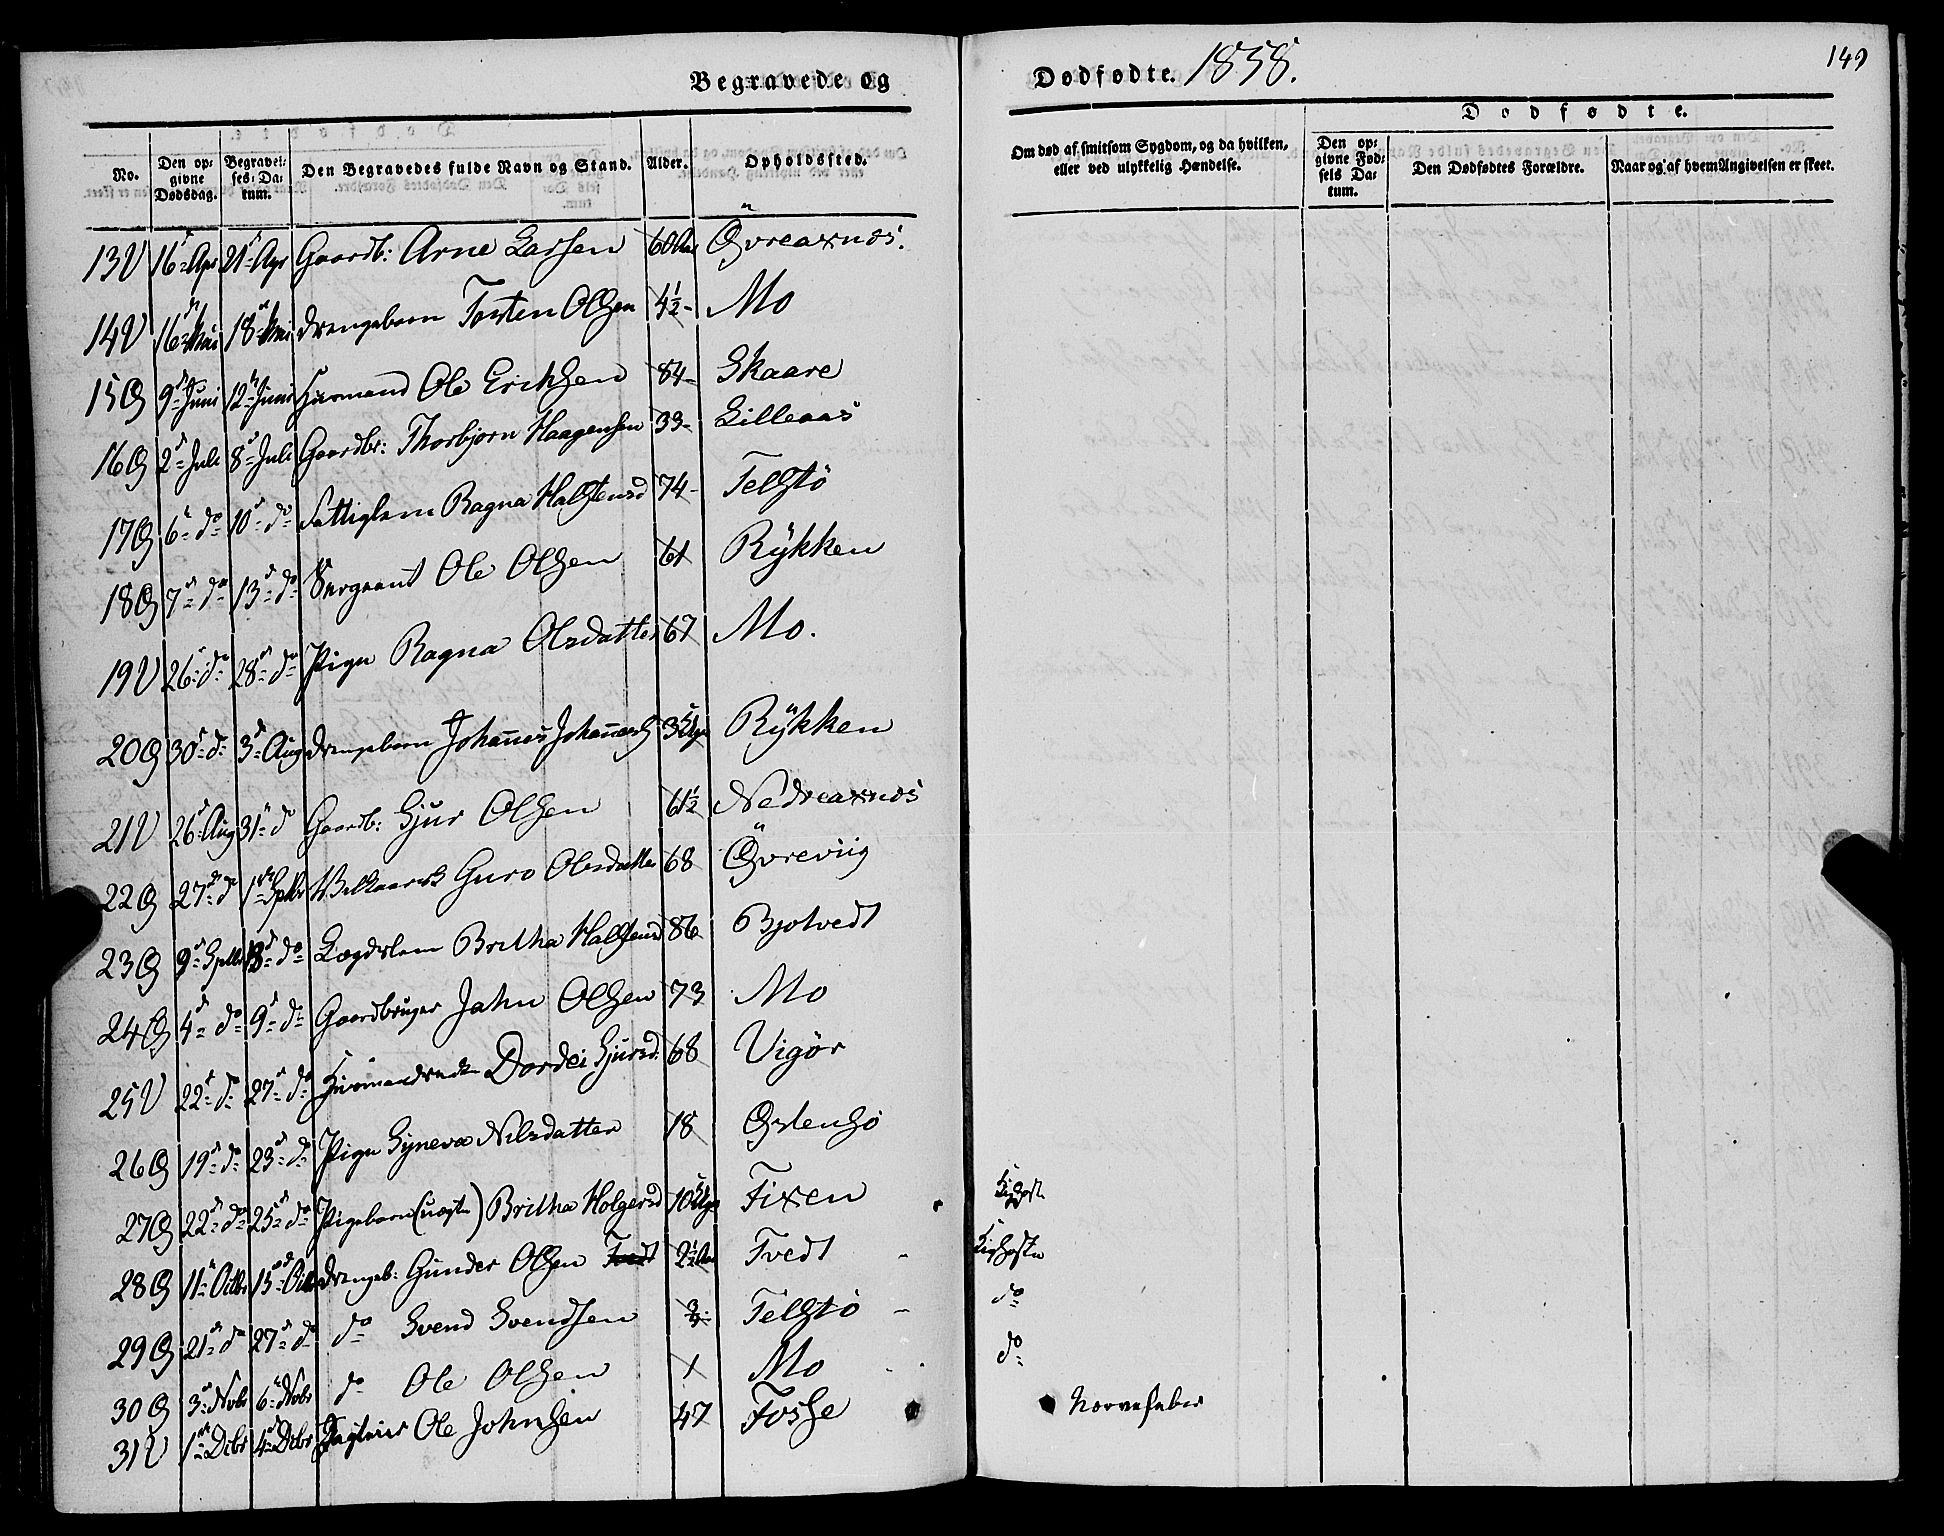 Begravede og
Dødfødte. 1838.
149
No.
Den opgivne Dødsdag.
Begravelses-Datum.
Den Begravedes fulde Navn og Stand.
Alder.
Opholdssted.
Om død af smitsom Sygdom, og da hvilken, eller ved ulykkelig Hændelse.
Dødfødte.
Den opgivne Fødsels Datum.
Den Dødfødtes Forældre.
Naar og af hvem Angivelsen er skeet.
13 V 16 Apr 21 Apr Gaardb: Arne Larsen 60 Aar Övreaxnes.
14 V 16 Mai 18 Mai Drengebarn Torsten Olsen 4½ Mo
15 Ø 9 Juni 12 Juni Huusmand Ole Eriksen 84 Skaare
16 Ø 2 Juli 8 Juli Gaardbr: Thorbjørn Haagensen 33 Lilleaas
17 Ø 6 do 10 do Fattiglem Ragna Halstensd 74 Telstö
18 Ø 7 do 13 do Sergeant Ole Olsen 61 Rÿkken
19 V 26 do 28 do Pige Ragna Olsdatter 67 Mo.
20 Ø 30 do 3 Aug Drengebarn Johannes Johannes 3 Uger Rÿkken
21 V 26 Aug 31 do Gaardb: Sjur Olsen 61½ Nedreaxnes
22 Ø 27 do 1 Sptbr Guro Olsdatter 68 Övreviig
23 Ø 9 Sptbr 13 do Lægdslem Britha Halstensd 86 Bjotvedt
24 Ø 4 do 9 do Gaardbruger Jahn Olsen 73 Mo
25 V 22 do 27 do Dordei Sjursd. 68 Vigör
26 Ø 19 do 23 do Pige Syneva Nilsdatter 18 Østensö
27 Ø 22 do 25 do Pigebarn (uægte) Britha Holgersd 10 Uger Fixen Kighoste
28 Ø 11 Octbr 15 Octbr Drengeb: Gunder Olsen Tvedt 2½ Aar Tvedt Kighoste
29 Ø 21 do 27 do do Svend Svendsen Telstö do
30 Ø 3 Nvbr 6 Nvbr do Ole Olsen 1 Mo do
31 V 1 Dcbr 4 Dcbr Ole Johnsen 47 Fosse Nervefeber